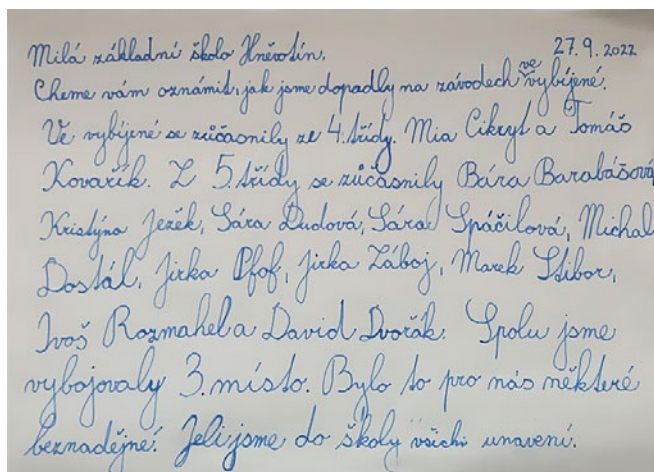 Milá základní školo Hněvotín, 27.9.2022
Cheme vám oznámit, jak jsme dopadly na závodech ve vybíjené.
Ve vybíjené se zůčasnily ze 4. třídy. Mia Cikryt a Tomáš
Kovařík. Z 5. třídy se zůčasnily Bára Barabášová,
Kristýna Ježek, Sára Dudová, Sára Spáčilová, Michal
Dostál, Jirka Pfof, Jirka Záboj, Marek Stibor,
Ivoš Rozmahel a David Dvořák. Spolu jsme
vybojovaly 3. místo. Bylo to pro nás některé
beznadějné. Jeli jsme do školy všichi unavení.